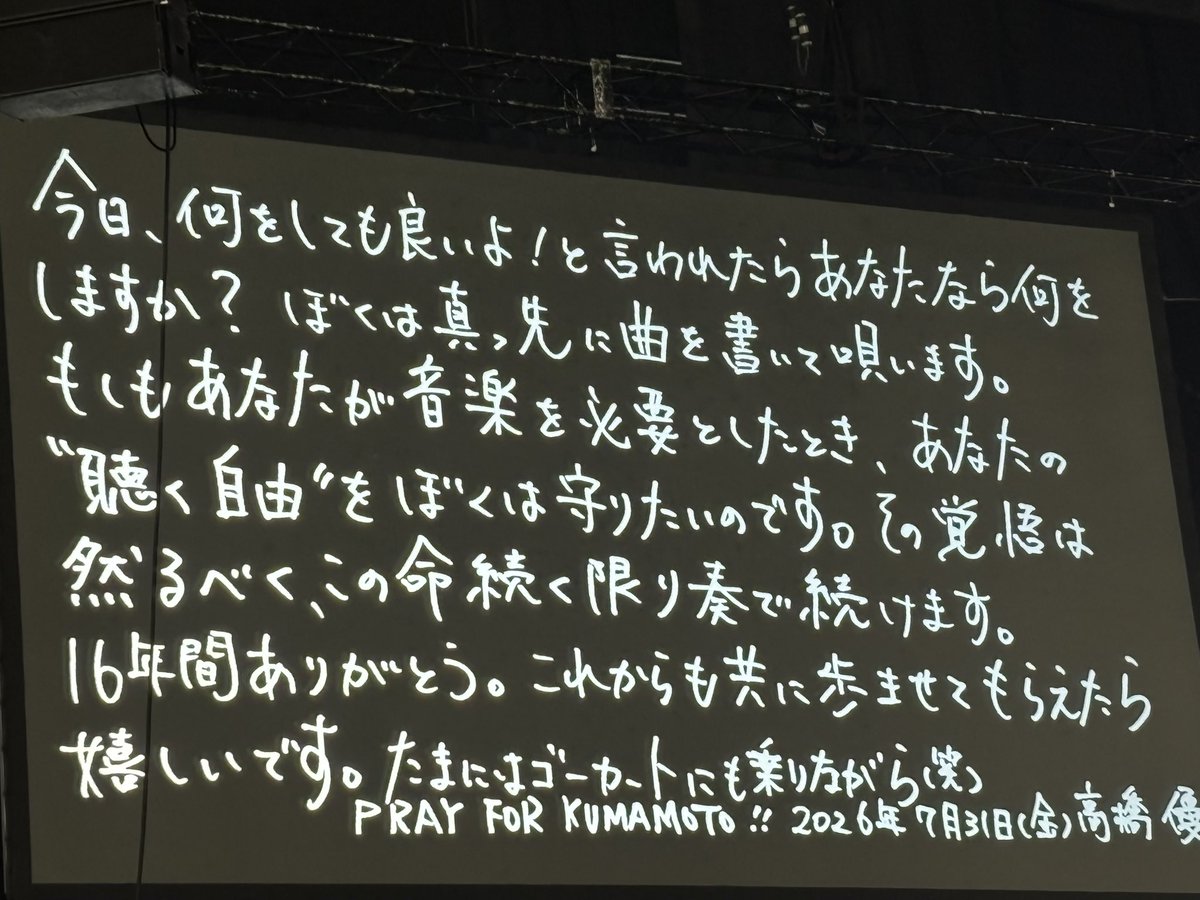 今日、何をしても良いよ！と言われたらあなたなら何を
しますか？ ぼくは真っ先に曲を書いて唄います。
もしもあなたが音楽を必要としたとき、あなたの
"聴く自由"をぼくは守りたいのです。その覚悟は
然るべく、この命続く限り奏で続けます。
16年間ありがとう。これからも共に歩ませてもらえたら
嬉しいです。たまにはゴーカートにも乗りながら(笑)
PRAY FOR KUMAMOTO!! 2026年7月31日(金)高橋優